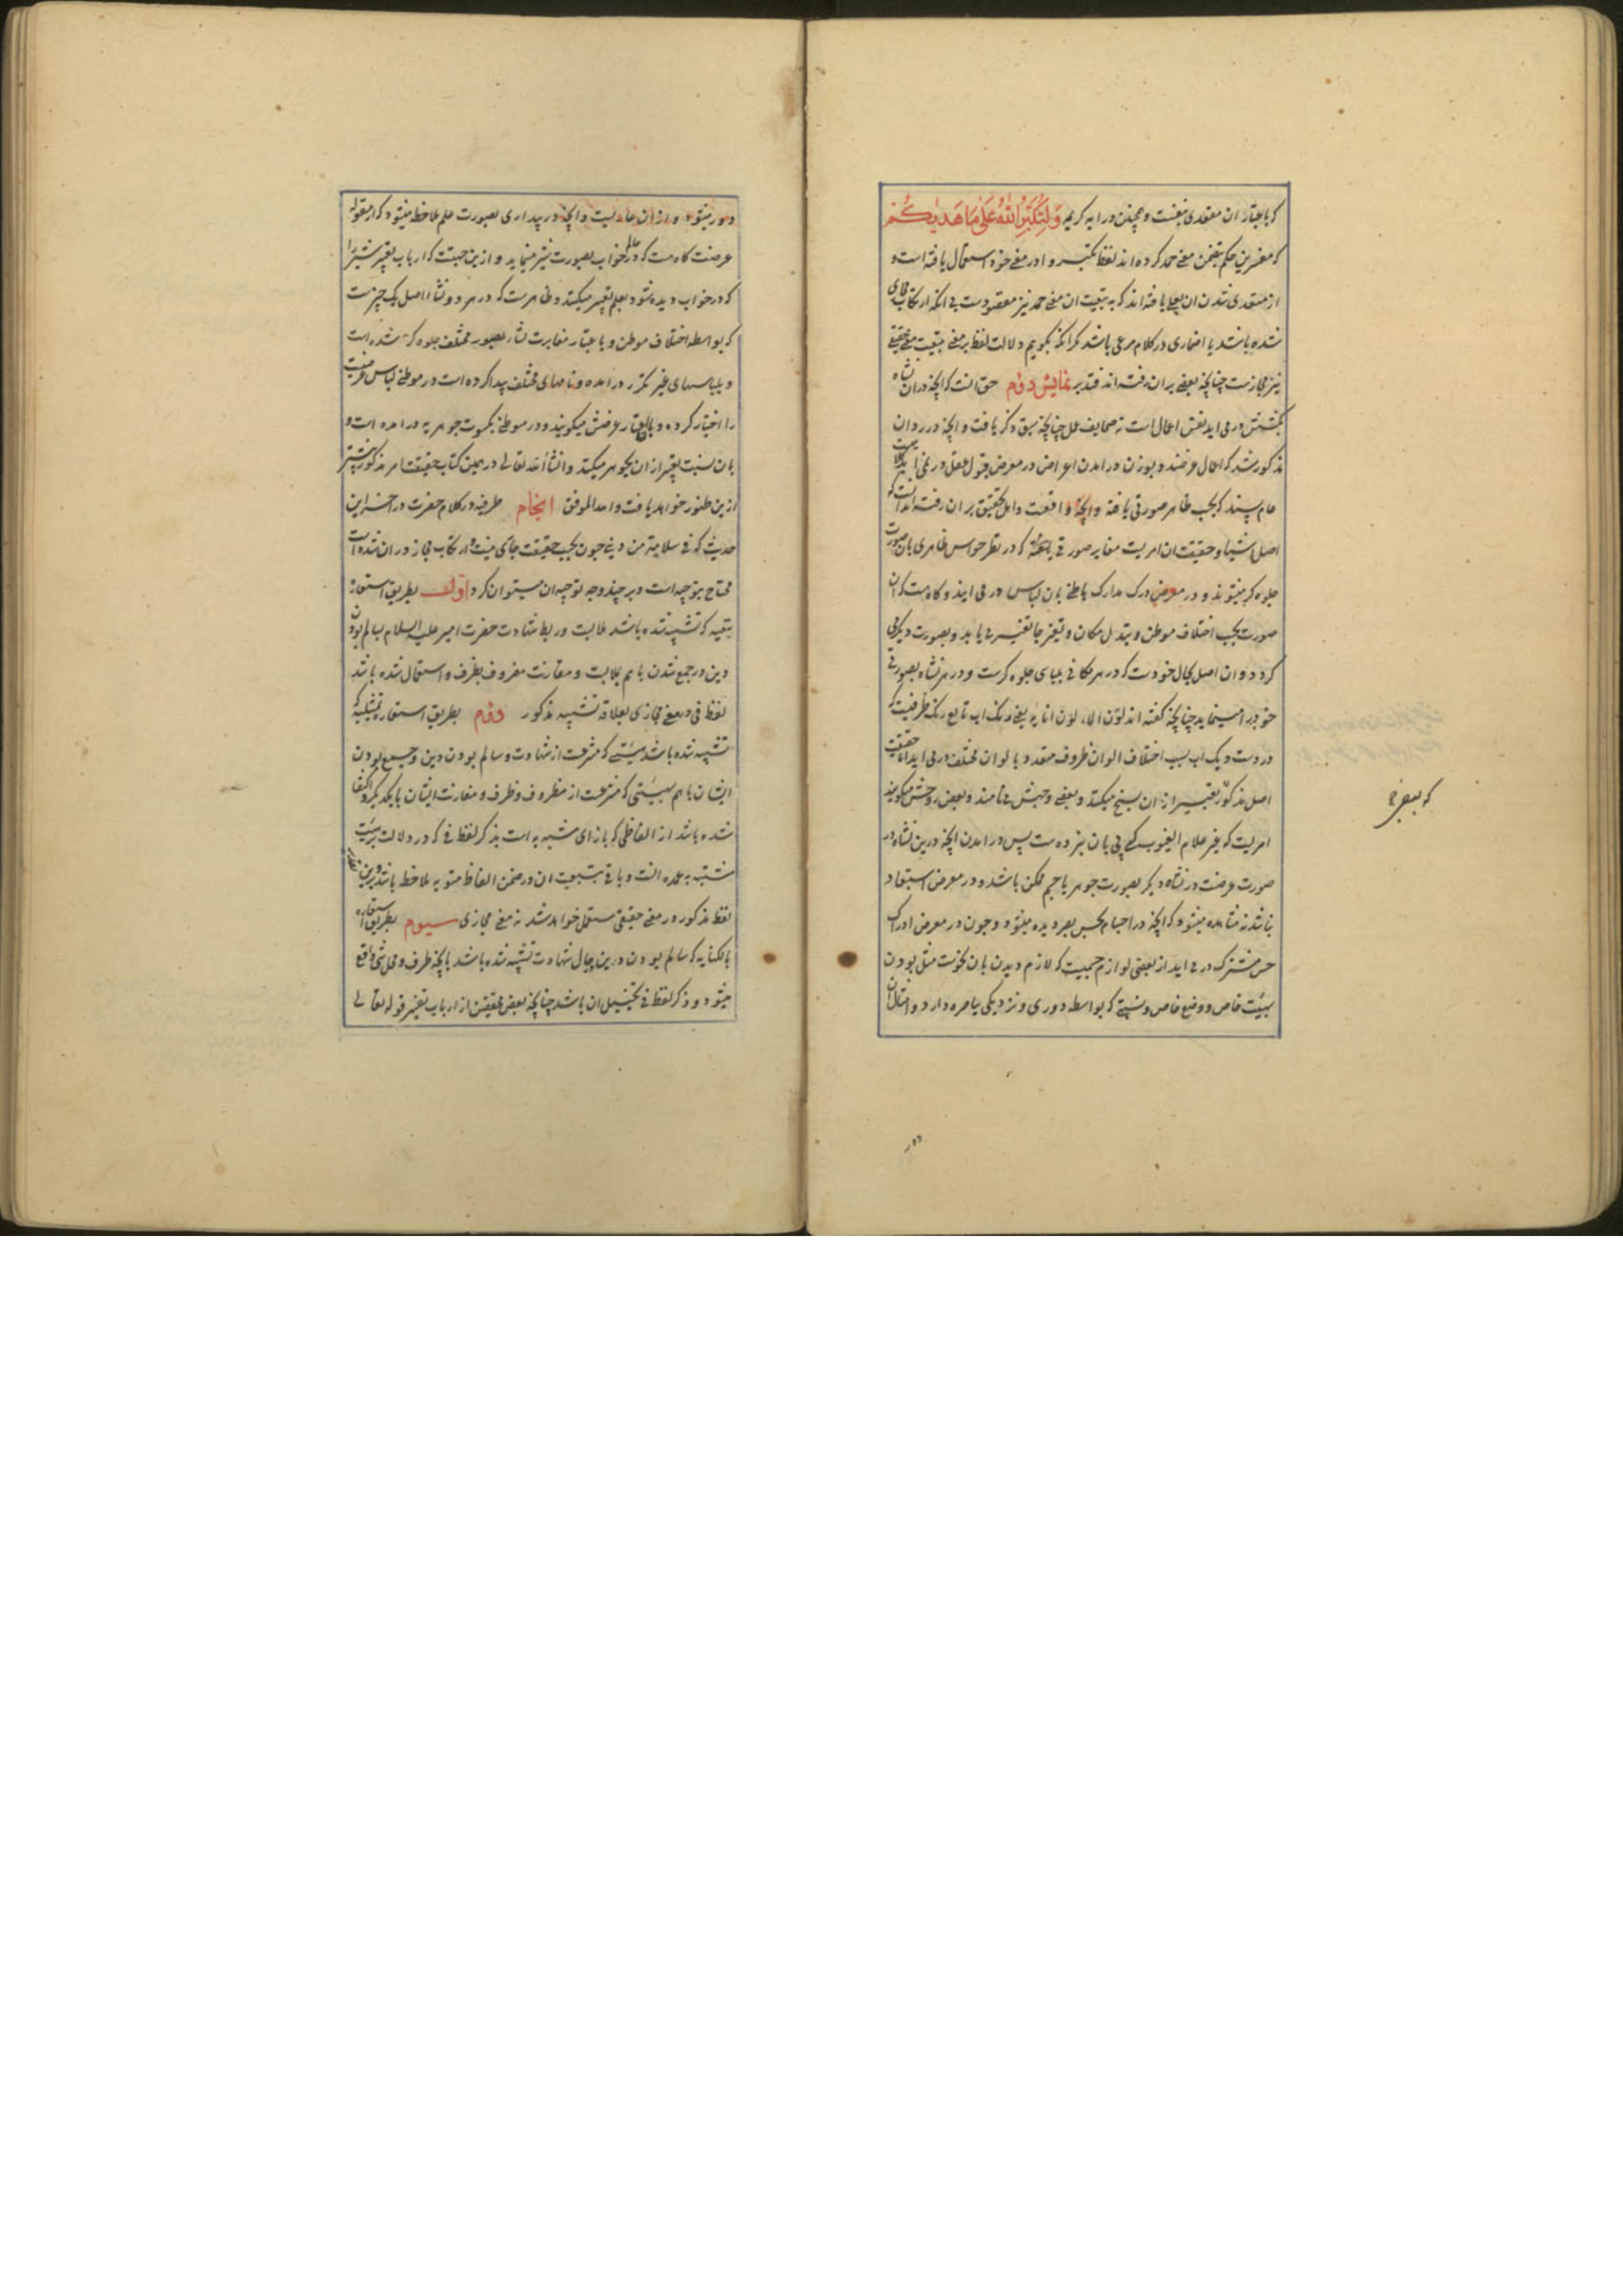 که باعتبار ان متعدی بنفسست و همچنین در ایه کریمه وَلِتُكَبِّرُوا اللهَ عَلَىٰ مَا هَدٰيكُمْ
که مفسرین حکم بتضمن معنی حمد کرده اند لفظ تکبیر در معنی خود استعمال یافته است و
از متعدی شدن ان بعلی یافته اند که به تبعیت ان معنی حمد نیز مقصودست بی انکه ارتکاب مجازی
شده باشد یا اضماری در کلام مرعی باشد مگر انکه بگویم دلالت لفظ بر معنی بتبعیت معنی حقیقی
نیز مجازست چنانچه بعضی بران رفته اند فتدبر نمایش دوم حق انست که انچه دران نشاه
بکشش در می اید نفس اعمال است نه صحایف عمل چنانچه سبق ذکر یافت و انچه در رد ان
مذکور شد که اعمال عرضند و بوزن در امدن اعراض در معرض قبول عقل در نمی اید
عام پسند که بحسب ظاهر صورتی یافته و انچه واقعست و اهل تحقیق بران رفته اند انست که
اصل اشیا و حقیقت ان امریست مغایر صورتی که در نظر حواس ظاهری بان صورت
جلوه گر میشوند و در معرض درک مدارک باطنی بان لباس در می ایند و گاه هست که ان
صورت بحسب اختلاف موطن و تبدل مکان و تغیر جا تغییر می یابد و بصورت دیگر می
گردد و ان اصل بحال خودست که در هر مکانی بلباسی جلوه گرست و در هر نشاه بصورتی
خود را مینماید چنانچه گفته اند لون الماء لون انائه یعنی رنگ اب تابع رنگ ظرفیست که
در وست و یک اب بسبب اختلاف الوان ظروف متعدد بالوان مختلف در می اید اما حقیقت
اصل مذکور تعبیر از ان بسنخ میکنند و بعضی وجهش می نامند و بعضی روحش میگویند
امریست که غیر علام الغیوب کسی پی بان نبرده است پس در امدن انچه درین نشاه در
صورت عرضست در نشاه دیگر بصورت جوهر یا جسم ممکن باشد و در معرض استبعاد
نباشد نه مشاهده میشود که انچه در اجسام بحس بصر دیده میشود و چون در معرض ادراک
حس مشترک در می اید از بعضی لوازم جسمیت که لازم دیدن بان نحوست مثل بودن
بهیئت خاص و وضع خاص و نسبتی که بواسطه دوری و نزدیکی باصره دارد و امثال ان
که ببصر
دور
دور میشود و از ان عاریست و انچه در بیداری بصورت علم ملاحظه میشود که از مقوله
عرضست گاه هست که در عالم خواب بصورت شیر مینماید و از ین جهتست که ارباب تعبیر شیر را
که در خواب دیده شود بعلم تعبیر میکنند و ظاهرست که در هر دو نشاء اصل یک چیزست
که بواسطه اختلاف موطن و باعتبار مغایرت نشاء بصور مختلف جلوه گر شده است
و بلباسهای غیر مکرر در امده و نامهای مختلف پیدا کرده است در موطنی لباس عرضیت
را اختیار کرده و باین اعتبار عرضش میگویند و در موطنی بکسوت جوهریه در امده است و
بان نسبت تعبیر از ان بجوهر میکنند و انشاء الله تعالی در همین کتاب حقیقت امر مذکور بیشتر
ازین ظهور خواهد یافت و الله الموفق انجام ظرفیه در کلام حضرت در اخر این
حدیث که فی سلامة من دینی چون بحسب حقیقت جای نیست و ارتکاب مجاز در ان شده است
محتاج بتوجیه است و بر چند وجه توجیه ان میتوان کرد اول بطریق استعاره
تبعیه که تشبیه شده باشد ملابست و ربط شهادت حضرت امیر علیه السلام بسالم بودن
دین در جمع شدن با هم بملابست و مقارنت مظروف بظرف و استعمال شده باشد
لفظ فی در معنی مجازی بعلاقه تشبیه مذکور دوم بطریق استعاره تمثیلیه که
تشبیه شده باشد هیئتی که منتزعست از شهادت و سالم بودن دین و جمع بودن
ایشان با هم بهیئتی که منتزعست از مظروف و ظرف و مقارنت ایشان با یکدیگر و اکتفا
شده باشد از الفاظی که بازای مشبه به است بذکر لفظ فی که در دلالت بر هیئت
مشبه به عمده انست و باقی بتبعیت ان در ضمن الفاظ منویه ملاحظ باشد و برین تقدیر
لفظ مذکور در معنی حقیقی مستعمل خواهد شد نه معنی مجازی سیوم بطریق استعاره
بالکنایه که سالم بودن درین حال شهادت تشبیه شده باشد بانچه ظرف و محل شی واقع
میشود و ذکر لفظ فی تخییل ان باشد چنانچه بعضی محققین از ارباب تفسیر قوله تعالی